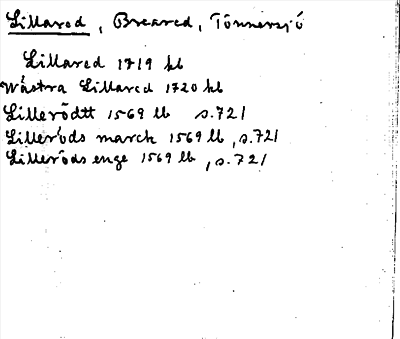 Lillared, Breared, Tönnersjö
Lillared 1719 kb
Wästra Lillared 1720 kb
Lillerödtt 1569 lb s.721
Lilleröds march 1569 lb, s.721
Lilleröds enge 1569 lb, s.721